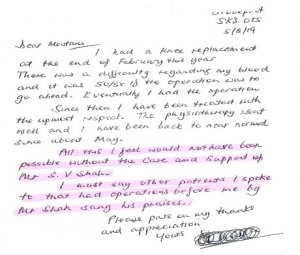 Stockport
SK3 0TS
5/8/19
Dear Madam
I had a knee replacement
at the end of February this year
There was a difficulty regarding my blood
and it was 50/50 if the operation was to
go ahead. Eventually I had the operation
Since then I have been treated with
the upmost respect. The physiotherapy went
well and I have been back to near normal
since about May.
All this I feel would not have been
possible without the Care and Support of
Mr S. V Shah.
I must say other patients I spoke
to that had operations before me by
Mr Shah sang his praises.
Please pass on my thanks
and appreciation
Yours